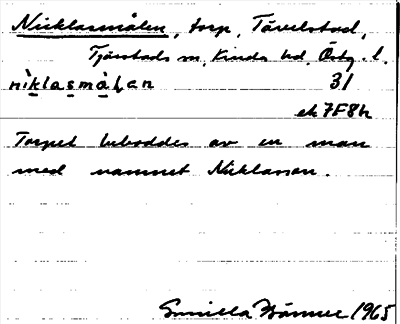 Nicklasmålen, torp, Tävelstad,
Tjärstads sn, Kinds hd, Östg. l.
nìklasmå̀lan 31
ek 7F8h
Torpet beboddes av en man
med namnet Nicklasson.
Gunilla Wärmer 1965